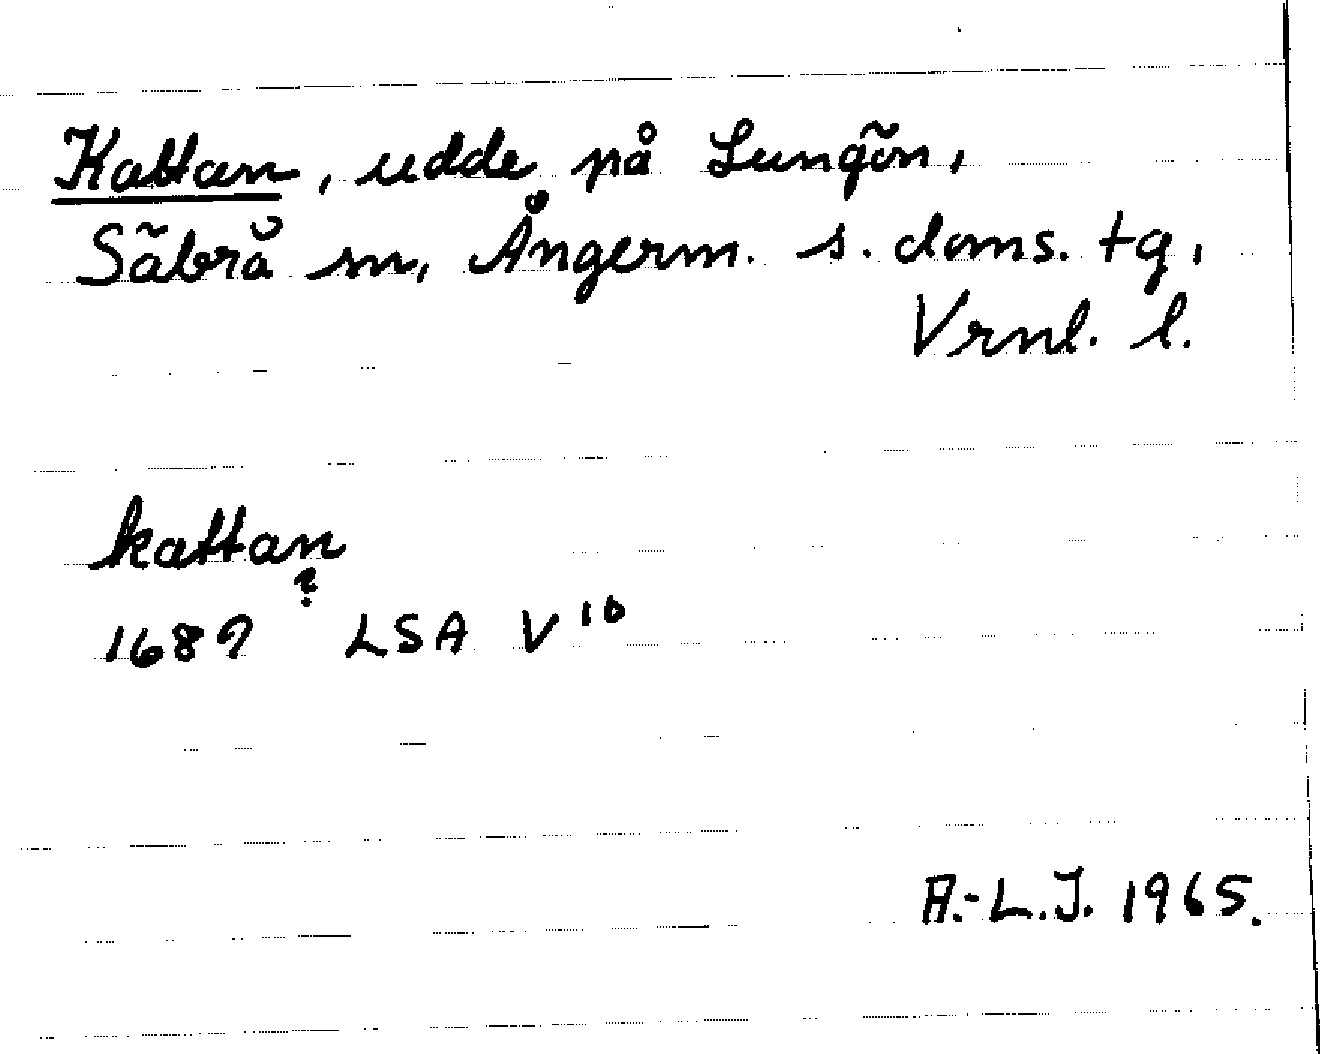 Kattan, udde på Lungön,
Säbrå sn, Ångerm. s. doms. tg,
Vrnl. l.
kattan
?
1689 LSA V 10
A.-L.J. 1965.